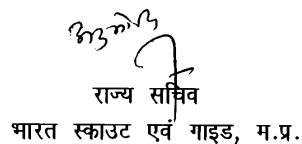 राज्य सचिव
भारत स्काउट एवं गाइड, म.प्र.